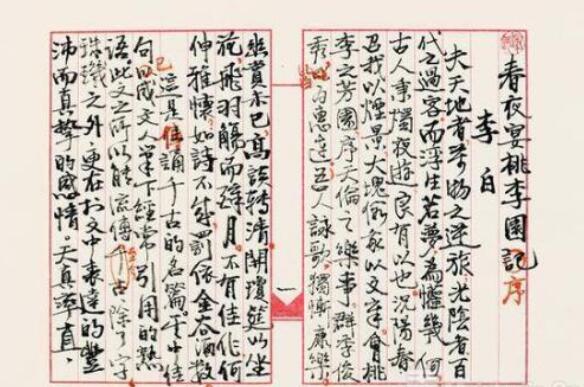 春夜宴桃李園記序
李白
夫天地者萬物之逆旅光陰者百
代之過客而浮生若夢為懽幾何
古人秉燭夜遊良有以也況陽春
召我以煙景大塊假我以文章會桃
李之芳園序天倫之樂事群季俊
秀皆為惠連吾人詠歌獨慚康樂
一
幽賞未已高談轉清開瓊筵以坐
花飛羽觴而醉月不有佳作何
伸雅懷如詩不成罰依金谷酒數
這是傳誦千古的名篇文中佳
句已成文人筆下經常引用的熟
語此文之所以能流傳千古除了字
珠璣之外更在於文中表達的豐
沛而真摯的感情。天真率直、